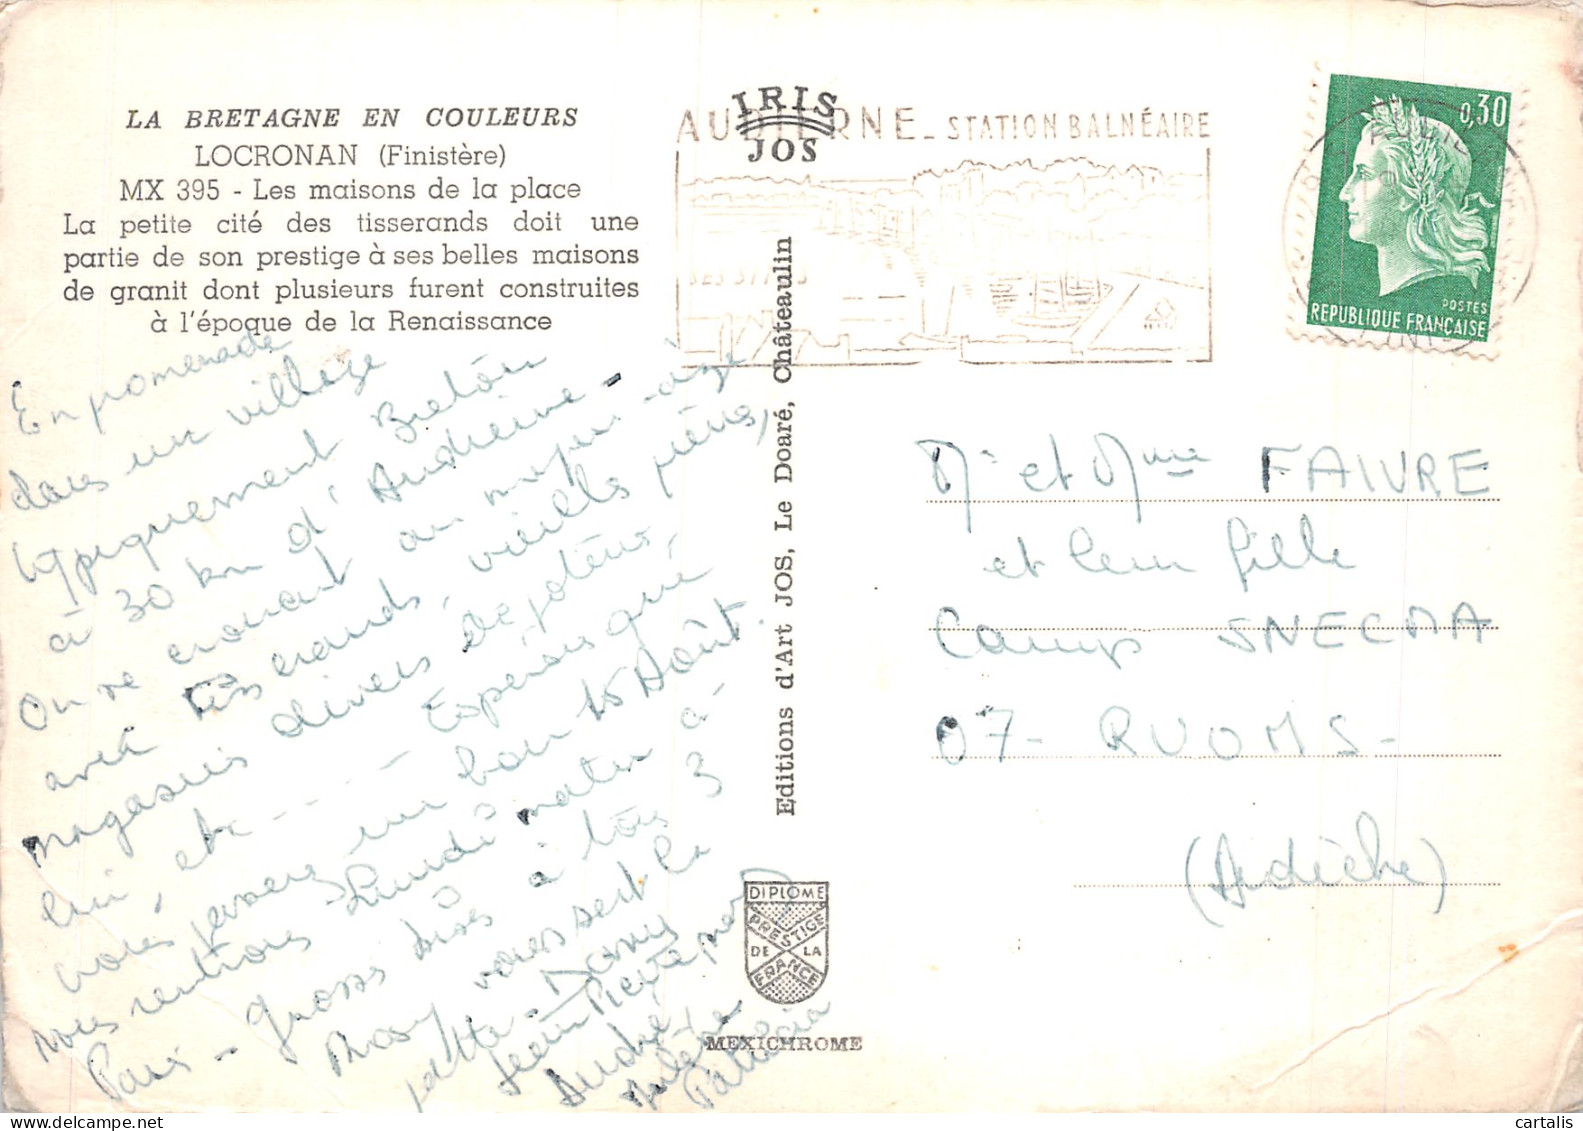 LA BRETAGNE EN COULEURS
LOCRONAN (Finistère)
MX 395 - Les maisons de la place
La petite cité des tisserands doit une
partie de son prestige à ses belles maisons
de granit dont plusieurs furent construites
à l'époque de la Renaissance
En promenade
dans un village
typiquement Breton
à 30 km d'Audierne -
On se croirait au moyen-âge
avec tisserands, vieilles pierres,
magasins divers,
cuir, etc ---- Espérons que
vous passez un bon 15 Août.
nous rentrons Lundi matin à
Paris - Grosses bises à tous 3
vous sert la
patte -
Jean Pierre
André
Patricia
IRIS
JOS
AUDIERNE - STATION BALNÉAIRE
Editions d'Art JOS, Le Doaré, Châteaulin
DIPLOME
PRESTIGE
DE LA
FRANCE
MEXICHROME
0,30
POSTES
REPUBLIQUE FRANÇAISE
Mr et Mme FAIVRE
et leur fille
Camp SNECMA
07 - RUOMS -
(Ardèche)
cartalis